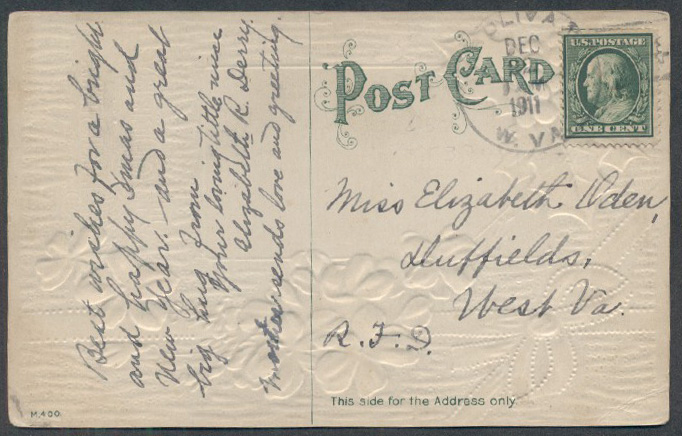 Best wishes for a bright
and happy Xmas and
New Year. - and a great
big hug from
Your loving little niece
Elizabeth R. Derry.
Mother sends love and greeting.
POST CARD
DEC
1911
W. VA
U.S. POSTAGE
ONE CENT
Miss Elizabeth Oden,
Duffields,
West Va.
R. F. D.
This side for the Address only.
M.400.